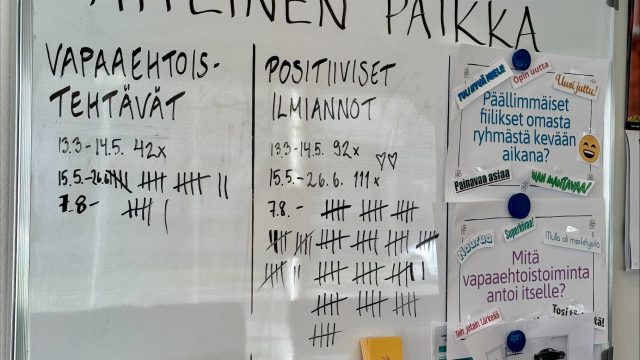 PAIKKA
VAPAAEHTOIS-
TEHTÄVÄT
13.3-14.5. 42x
15.5.-26.6
7.8-
POSITIIVISET
ILMIANNOT
13.3-14.5. 92x
15.5.-26.6. 111x
7.8.-
Opin uutta
Uusi juttu!
Päällimmäiset
fiilikset omasta
ryhmästä kevään
aikana?
Painavaa asiaa
Naurua
Superkivaa!
Mulla oli merkitystä
Mitä
vapaaehtoistoiminta
antoi itselle?
Tein jotain tärkeää